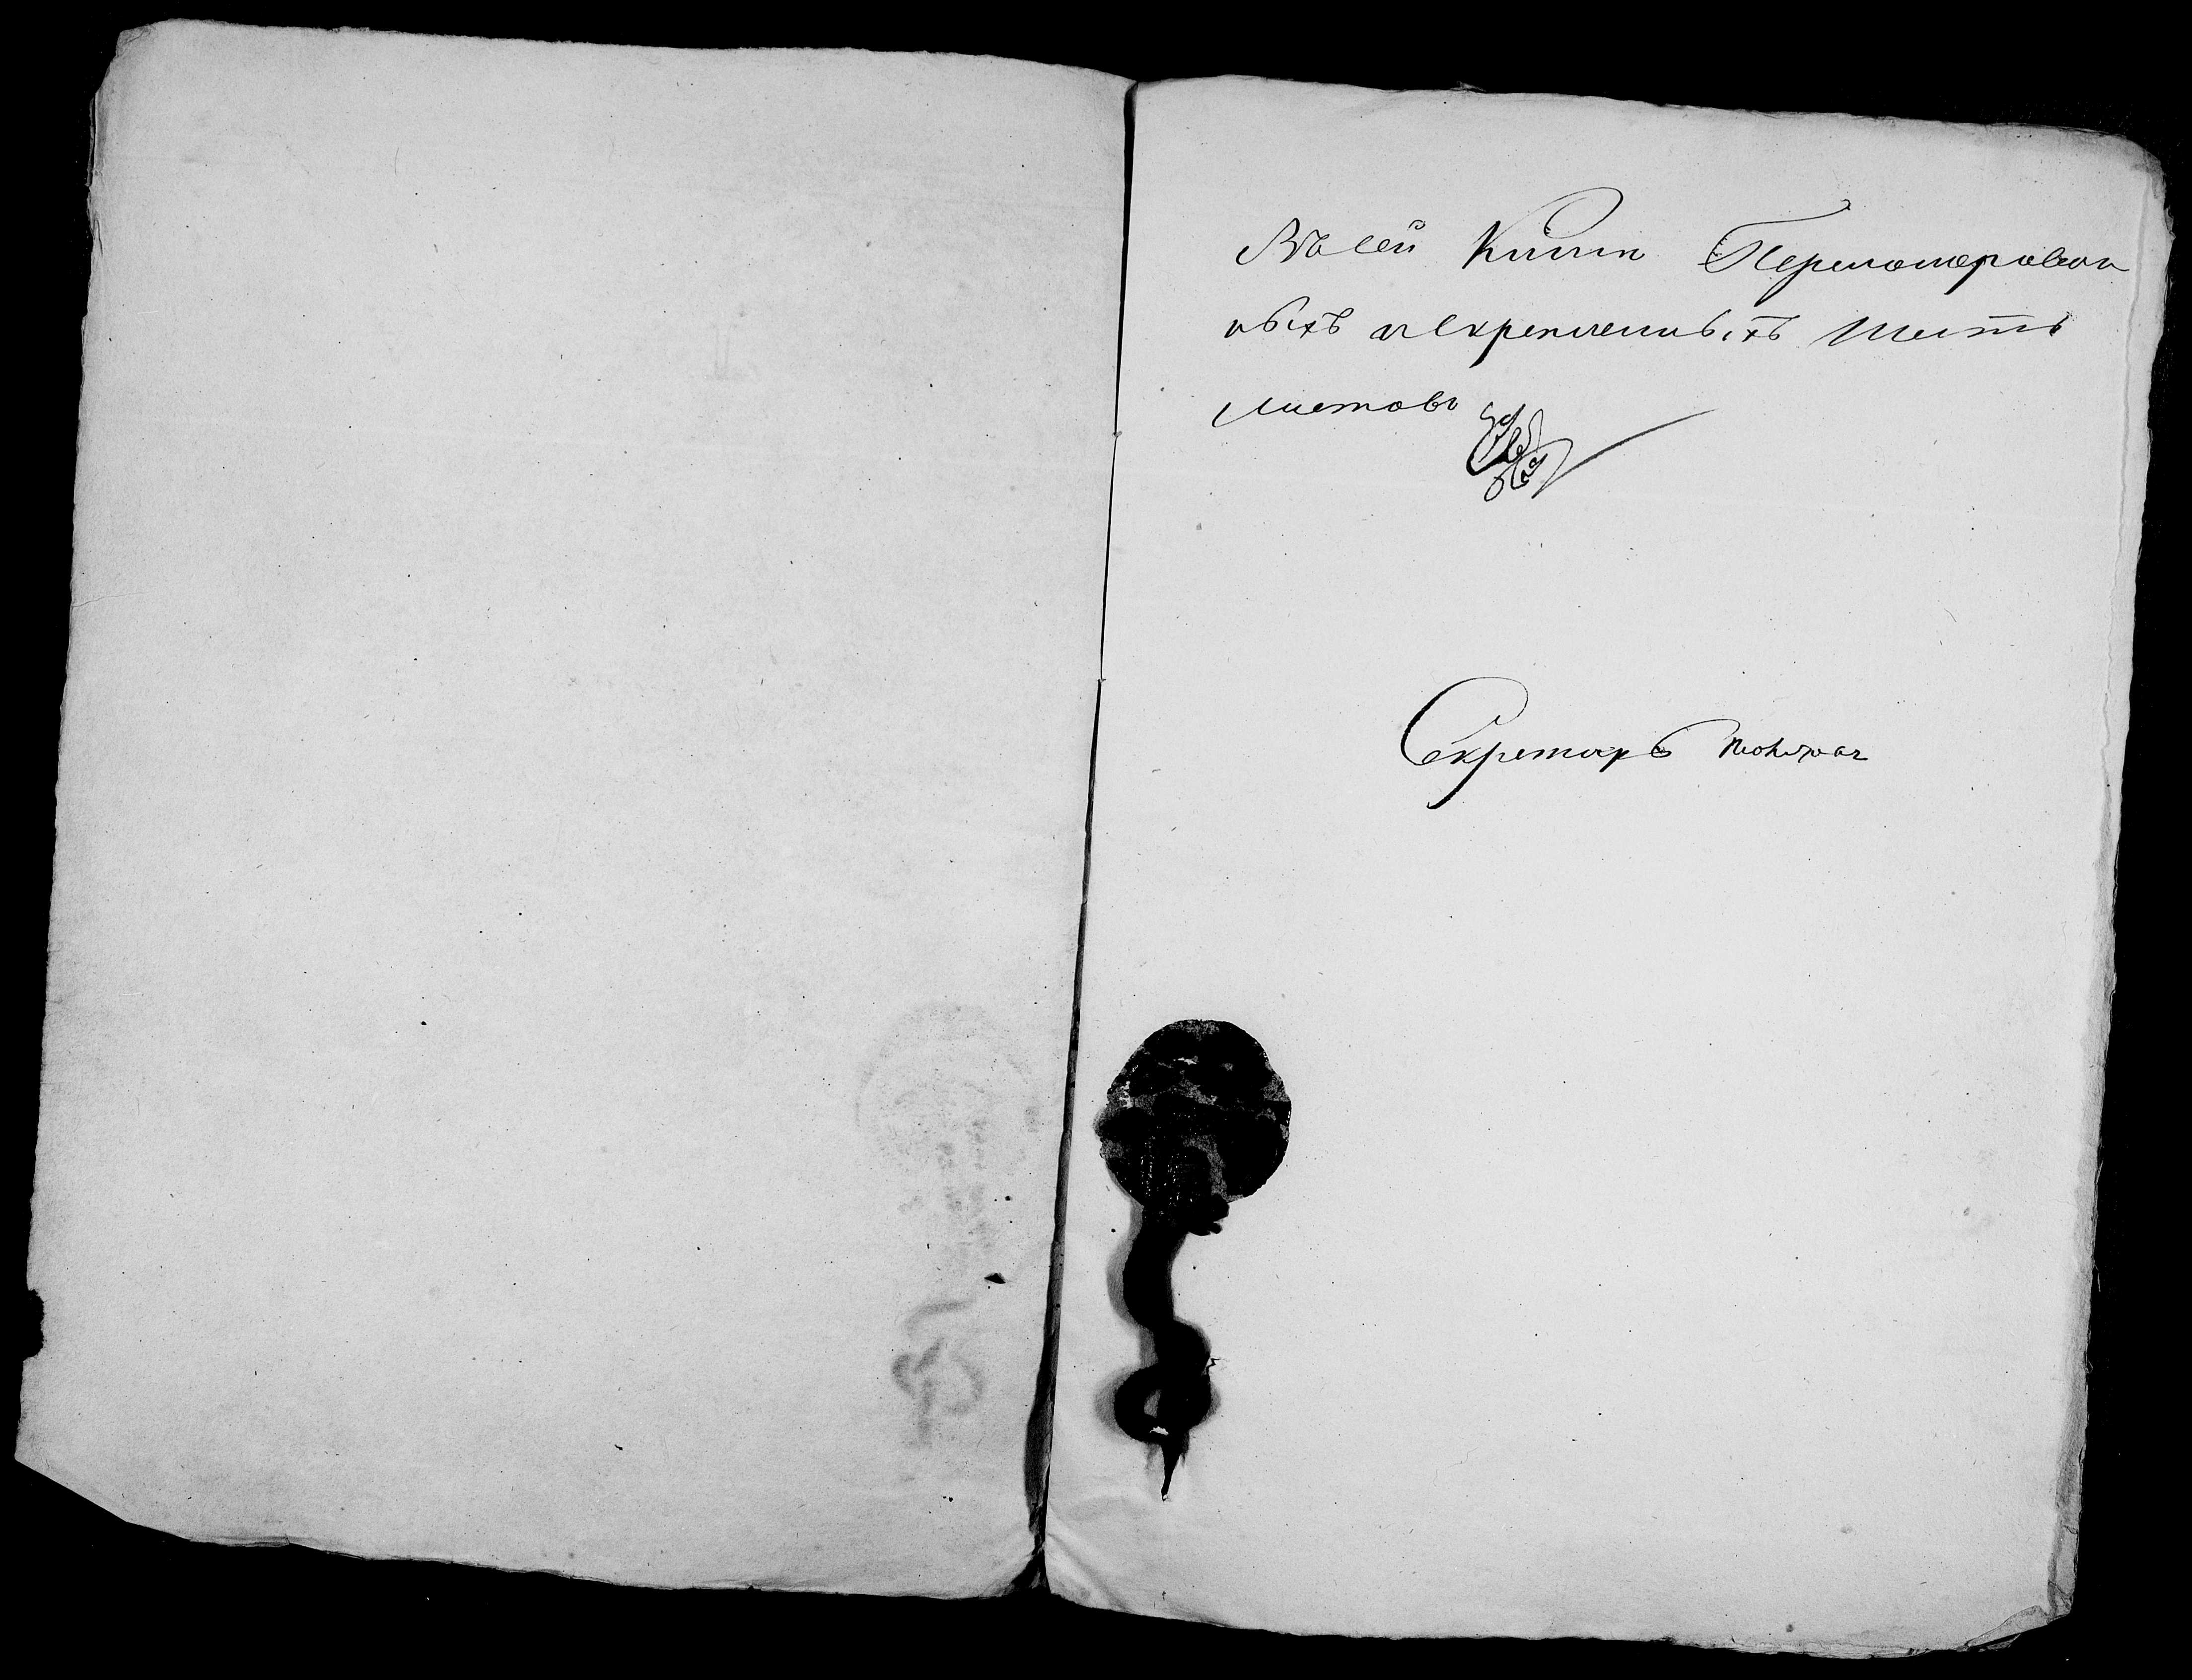 Въ сей Книги Перенамерован
ныхъ и скрепленныхъ шесть
листовъ
Секретарь